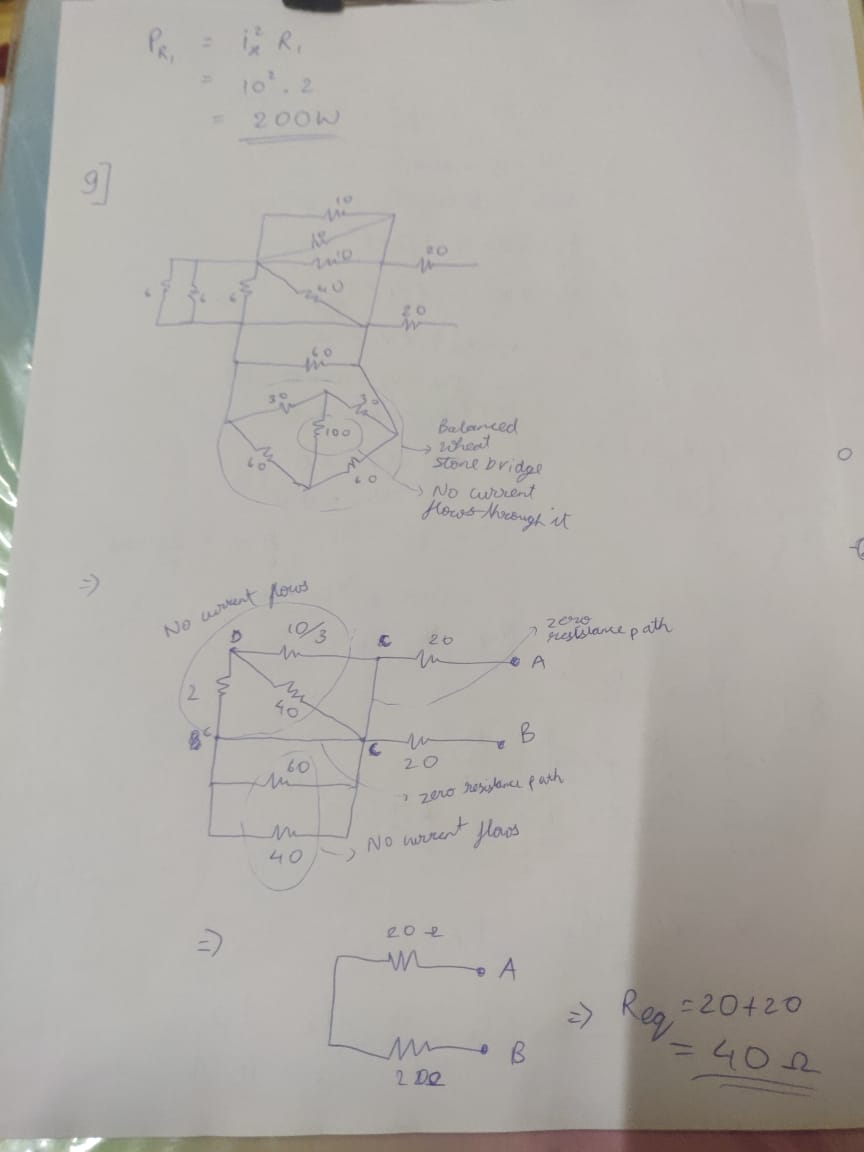 P_R₁ = i_x² R₁
= 10² . 2
= 200W
9]
10
10
10
20
40
6 6 6
20
60
30 30
100
60 60
Balanced
wheat
stone bridge
No current
flows through it
=> No current flows
zero
resistance path
D 10/3 C 20 A
2
40
C B
C
20
60
zero resistance path
No current flows
40
=>
20 Ω
A
=> Req = 20+20
= 40 Ω
B
20Ω